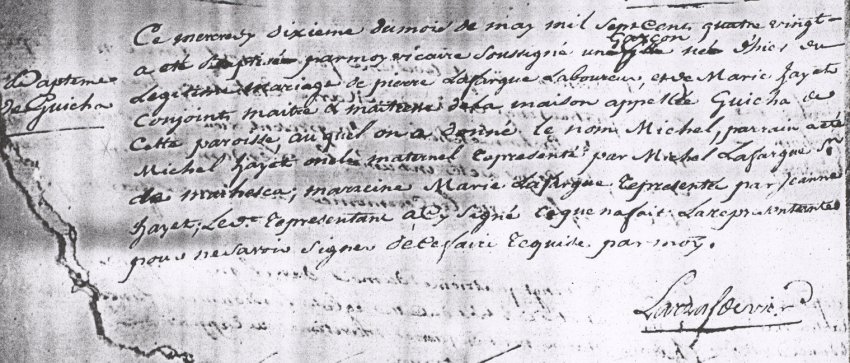 Ce mercredy dixieme du mois de may mil sept cents quatre vingt
garçon
a eté baptisé par moy vicaire soussigné une fille née d'hier du
Legitime mariage de pierre Lafargue Laboureur et de Marie hayet
Conjoints maitre & maitresse de la maison appellée Guicha de
cette paroisse auquel on a donné le nom Michel, parrain a eté
Michel hayet oncle maternel representé par Michel Lafargue Sr
de mainesca, marraine Marie Lafargue representée par jeanne
hayet, Le dt. representant a cy signé ce que n'a fait La representante
pour ne savoir signer de ce faire requise par moy.
Bapteme
de Guicha
vicre